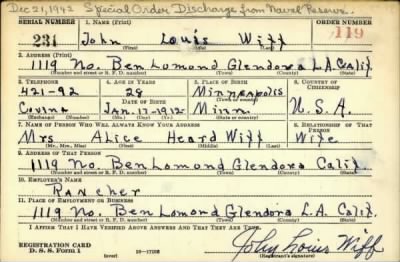 Dec 21, 1942 Special Order Discharge from Naval Reserve.
SERIAL NUMBER 1. NAME (Print) ORDER NUMBER
231 John Louis Wiff 119
(First) (Middle) (Last)
2. ADDRESS (Print)
1119 No. Ben Lomond Glendora L.A. Calif.
(Number and street or R. F. D. number) (Town) (County) (State)
3. TELEPHONE 4. AGE IN YEARS 5. PLACE OF BIRTH 6. COUNTRY OF CITIZENSHIP
421-92 29 Minneapolis
DATE OF BIRTH (Town or county)
Covina Jan-17-1912 Minn. U.S.A.
(Exchange) (Number) (Mo.) (Day) (Yr.) (State or country)
7. NAME OF PERSON WHO WILL ALWAYS KNOW YOUR ADDRESS 8. RELATIONSHIP OF THAT PERSON
Mrs Alice Heard Wiff Wife
(Mr., Mrs., Miss) (First) (Middle) (Last)
9. ADDRESS OF THAT PERSON
1119 No. Ben Lomond Glendora Calif.
(Number and street or R. F. D. number) (Town) (County) (State)
10. EMPLOYER'S NAME
Rancher
11. PLACE OF EMPLOYMENT OR BUSINESS
1119 No. Ben Lomond Glendora L.A. Calif.
(Number and street or R. F. D. number) (Town) (County) (State)
I AFFIRM THAT I HAVE VERIFIED ABOVE ANSWERS AND THAT THEY ARE TRUE.
REGISTRATION CARD
D. S. S. Form 1 (over) John Louis Wiff
(Registrant's signature)